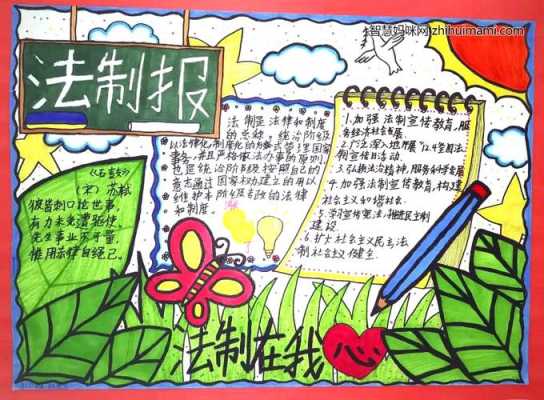 智慧妈咪网 zhihuimami.com
法制报
法制是法律和制度
的总称。统治阶级
以法律化、制度化的方式管理国家
事务,并且严格依法办事的原则
也是统治阶级按照自己的
意志通过国家权力建立的用以
维护本阶级专政的法律
和制度
1.加强法制宣传教育,服
务经济社会发展
2.广泛深入地开展"12.4"全国法
制宣传日活动.
3.弘扬法治精神,服务科学发展
4.加强法制宣传教育,构建
社会主义和谐社会.
5.学习宣传宪法,推进民主制
建设
6.扩大社会主义民主,法
制社会主义健全.
(宋) 苏轼
彼皆刺口论世事,
有力未免遭驱使.
先生事业不可量,
惟用法律自绳己.
法制在我心